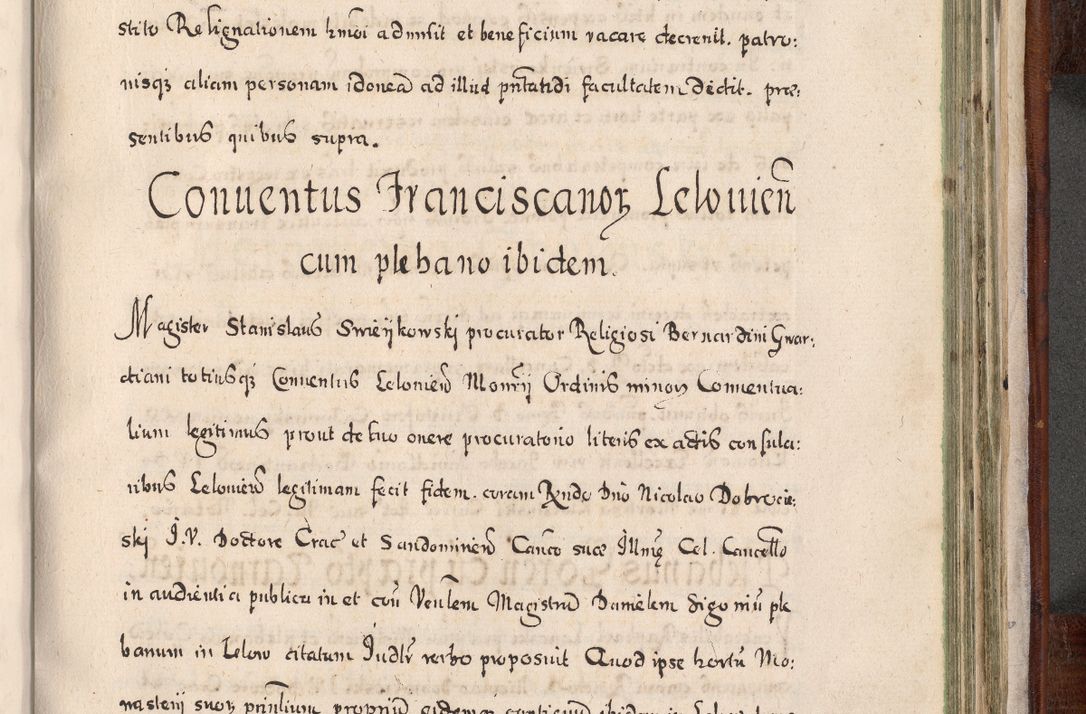 stito Resignationem hmoi admisit et beneficium vacare decrevit. patro:
nisqz aliam personam idoneā ad illud pn̄tandi facultatem dedit. præ:
sentibus quibus supra.
Conuentus Franciscanoꝝ Lelouien̄
cum plebano ibidem.
Magister Stanislaus Swieykowski procurator Religiosi Bernardini Gwar:
diani totiusqz Conuentus Lelouien̄ Monrÿ Ordinis minoꝝ Conuentua:
lium legitimus prout de suo onere procuratorio literis ex actis consula:
ribus Lelouien̄ legitimam fecit fidem. coram Rndo Dn̄o Nicolao Dobrocie:
ski J.V. Doctore Crac̄ et Sandomirien̄ Canco suæ Illmę Cel. Cancello
in audientia publica in et con̄ Venlem Magistrū Danielem Sigoniū ple
banum in Lelow citatum Judlr̄ verbo proposuit Quod ipse hortū Mo:
nasterij suoꝝ prin̄lium proprium eidem